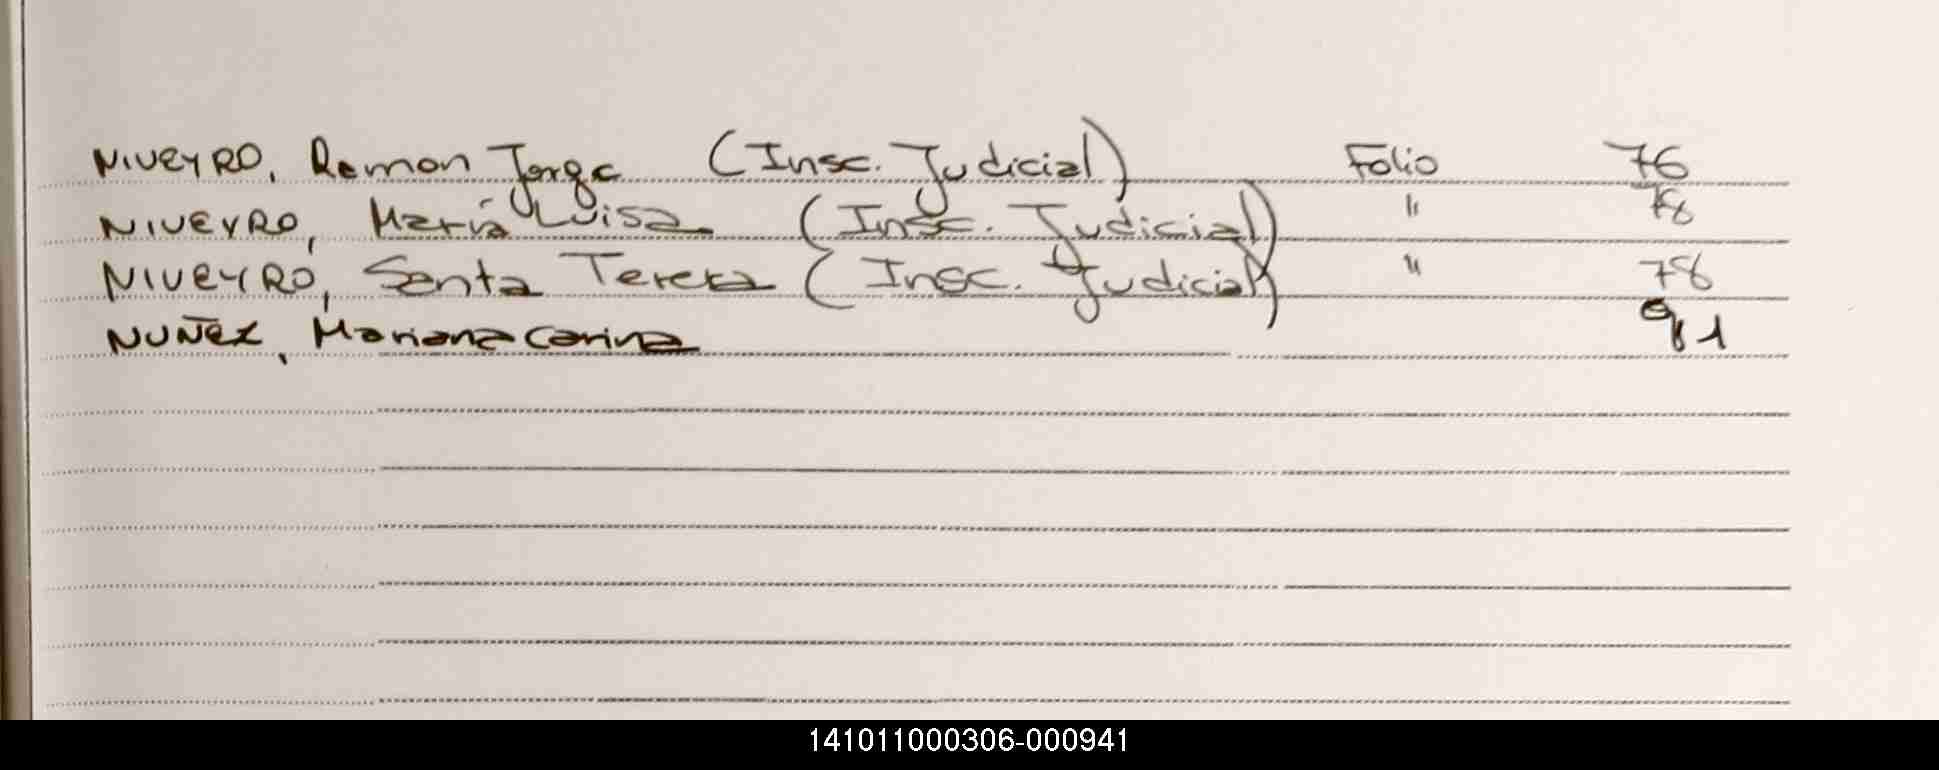 NIVEYRO, Ramon Jorge (Insc. Judicial) Folio 76
NIVEYRO, María Luisa (Insc. Judicial) " 78
NIVEYRO, Santa Teresa (Insc. Judicial) " 78
NUÑEZ, Mariana Carina 91
141011000306-000941